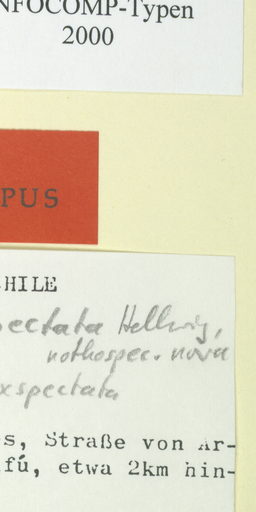 NFOCOMP-Typen
2000
PUS
HILE
pectata Hellwig,
nothospec. nova
xspectata
s, Straße von Ar-
fú, etwa 2km hin-